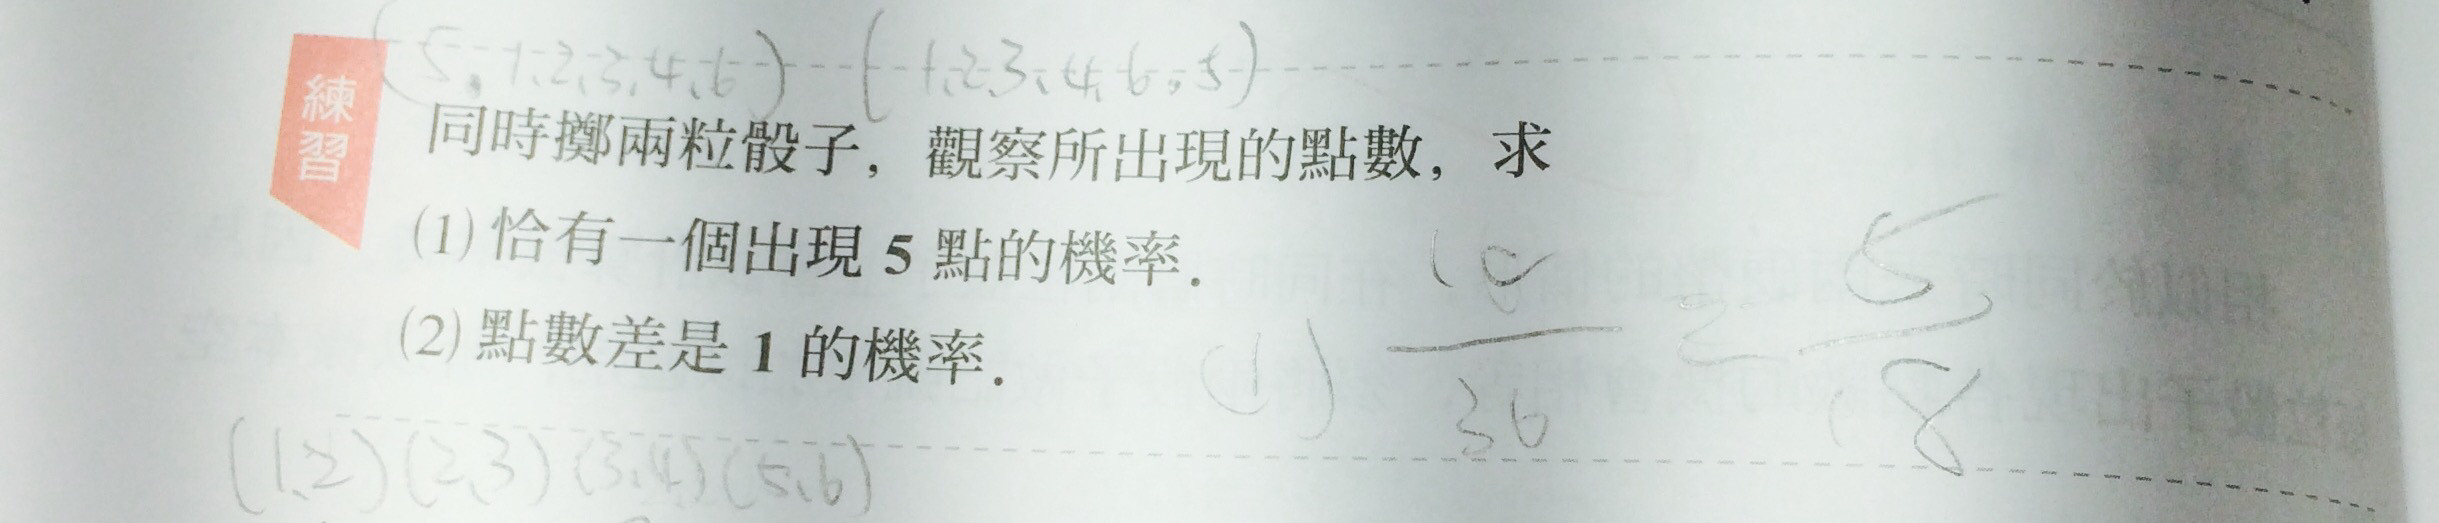 (5,1,2,3,4,6) (1,2,3,4,6,5)
練習
同時擲兩粒骰子，觀察所出現的點數，求
(1) 恰有一個出現 5 點的機率．
(2) 點數差是 1 的機率．
(1) 10/36 = 5/18
(1,2)(2,3)(3,4)(5,6)